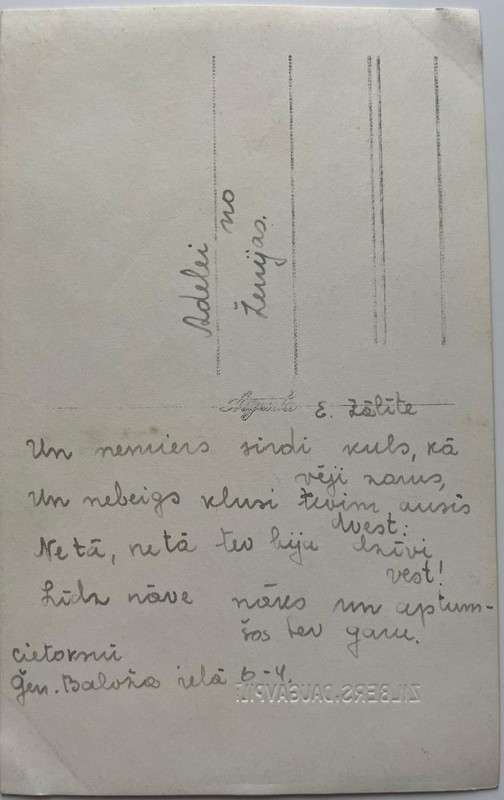 Adelei no
Ženijas.
E. Zālīte
Un nemiers sirdi kuls, kā
vēji zarus,
Un nebeigs klusi tevim ausīs
dvest:
Ne tā, ne tā tev bija dzīvi
vest!
Līdz nāve nāks un aptum-
šos tev garu.
cietoksnī
Ģen. Baloža ielā 6-4.
ZILBERS, DAUGAVPILĪ